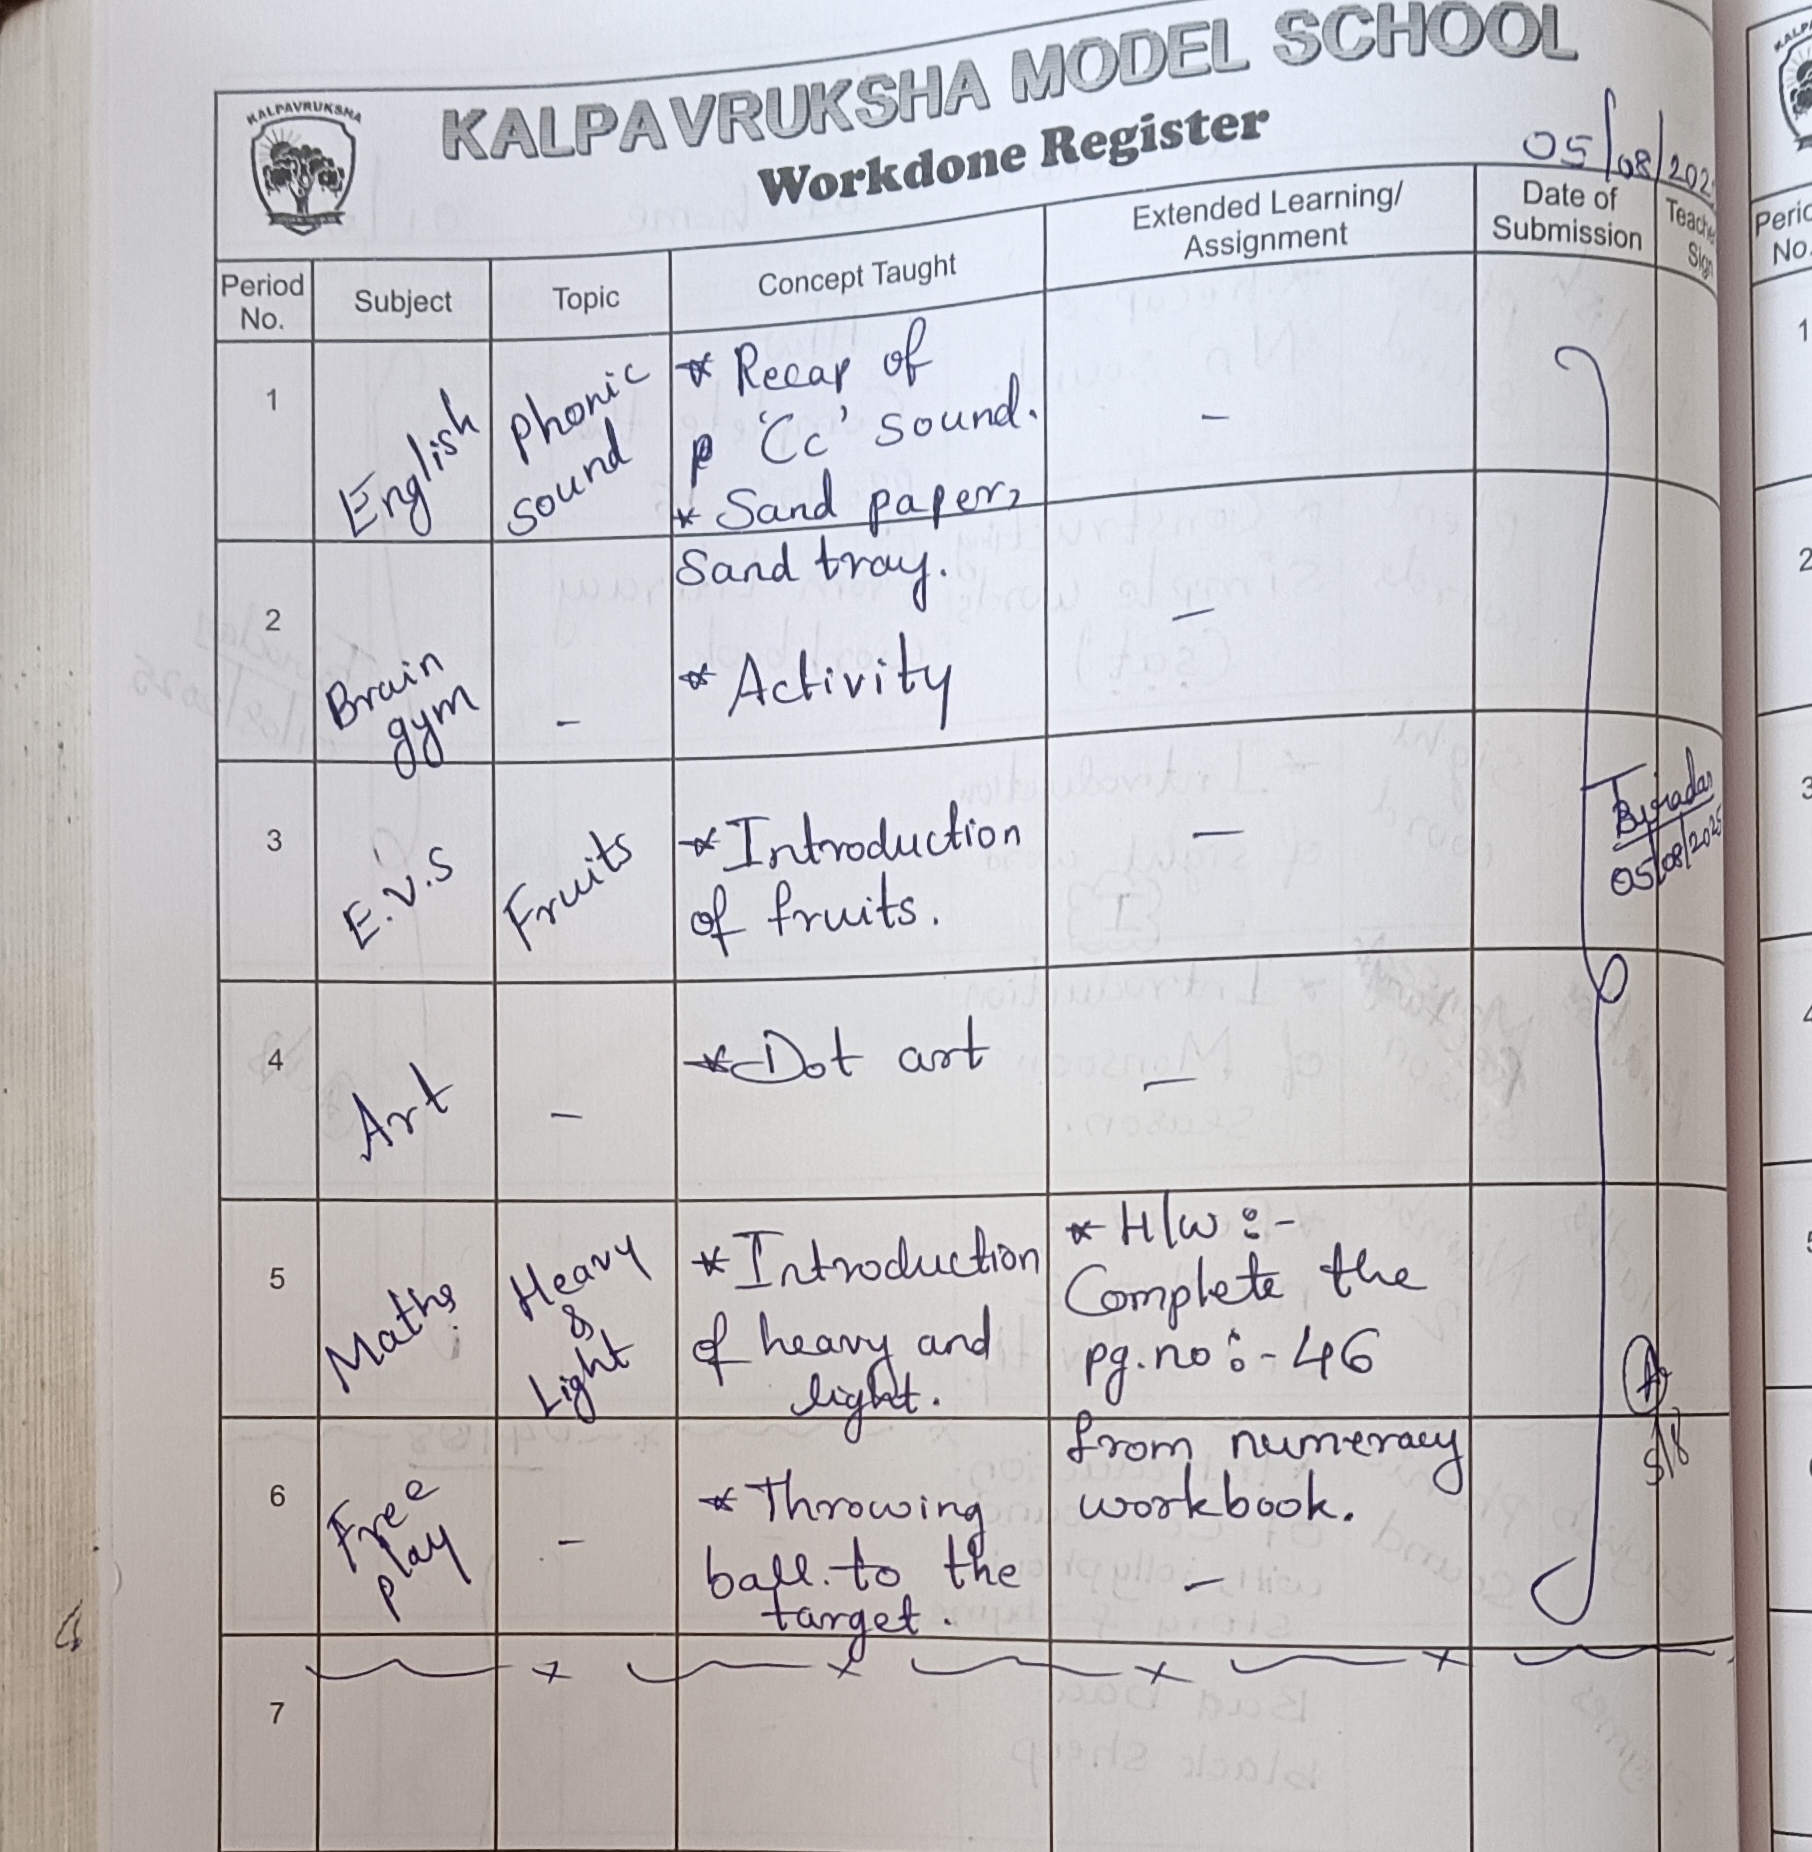 KALPAVRUKSHA
KALPAVRUKSHA MODEL SCHOOL
Workdone Register
05/08/202
Period No.
Subject
Topic
Concept Taught
Extended Learning/
Assignment
Date of
Submission
1
English
phonic
sound
* Recap of
'Cc' sound.
* Sand paper,
Sand tray.
-
2
Brain
gym
-
* Activity
-
3
E.V.S
Fruits
* Introduction
of fruits.
-
05/08/2025
4
Art
-
* Dot art
-
5
Maths
Heavy
&
Light
* Introduction
of heavy and
light.
* H/w :-
Complete the
pg.no :- 46
from numeracy
workbook.
5/8
6
Free
play
-
* Throwing
ball to the
target.
-
7
Perio
No.
1
2
3
4
5